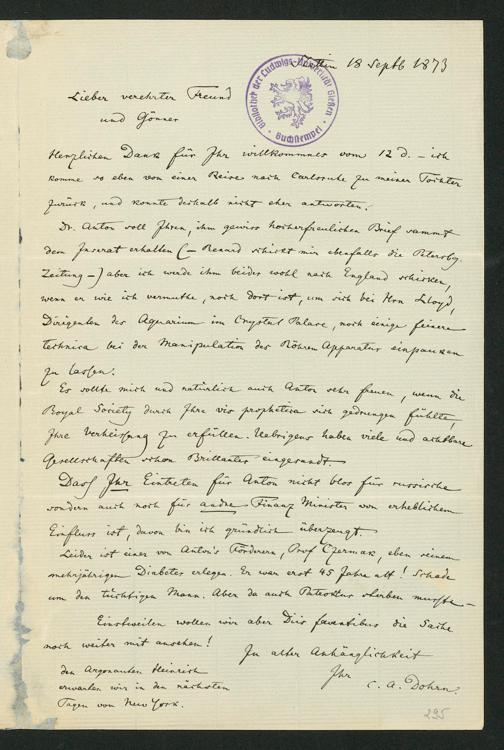 Stettin 18 Septb 1873
Bibliothek der Ludwigs-Universität Gießen
Buchstempel
Lieber verehrter Freund
und Gönner
Herzlichen Dank für Ihr willkommnes vom 12 d. – ich
komme so eben von einer Reise nach Carlsruhe zu meiner Tochter
zurück, und konnte deshalb nicht eher antworten.
Dr. Anton soll Ihren, ihm gewiss hocherfreulichen Brief sammt
dem Inserat erhalten (– Renard schickt mir ebenfalls die Petersbg.
Zeitung –) aber ich werde ihm beides wohl nach England schicken,
wenn er wie ich vermuthe, noch dort ist, um sich bei Hrn Lloyd,
Dirigenten des Aquarium im Crystal Palace, noch einige feinere
technica bei der Manipulation des Röhren Apparatus einpauken
zu lassen.
Es sollte mich und natürlich auch Anton sehr freuen, wenn die
Royal Society durch Ihre vis prophetica sich gedrungen fühlte,
Ihre Verheissung zu erfüllen. Uebrigens haben viele und achtbare
Gesellschaften schon Brillantes eingesandt.
Dass Ihr Eintreten für Anton nicht blos für russische
sondern auch noch für andre Finanz Minister von erheblichem
Einfluss ist, davon bin ich gründlich überzeugt.
Leider ist einer von Anton's Förderern, Prof Czermak, eben seinem
mehrjährigen Diabetes erlegen. Er war erst 45 Jahre alt! Schade
um den tüchtigen Mann. Aber da auch Patroklus sterben musste –
Einstweilen wollen wir aber Diis faventibus die Sache
noch weiter mit ansehen!
In alter Anhänglichkeit
Ihr
C. A. Dohrn.
den Argonauten Heinrich
erwarten wir in den nächsten
Tagen von New York.
295